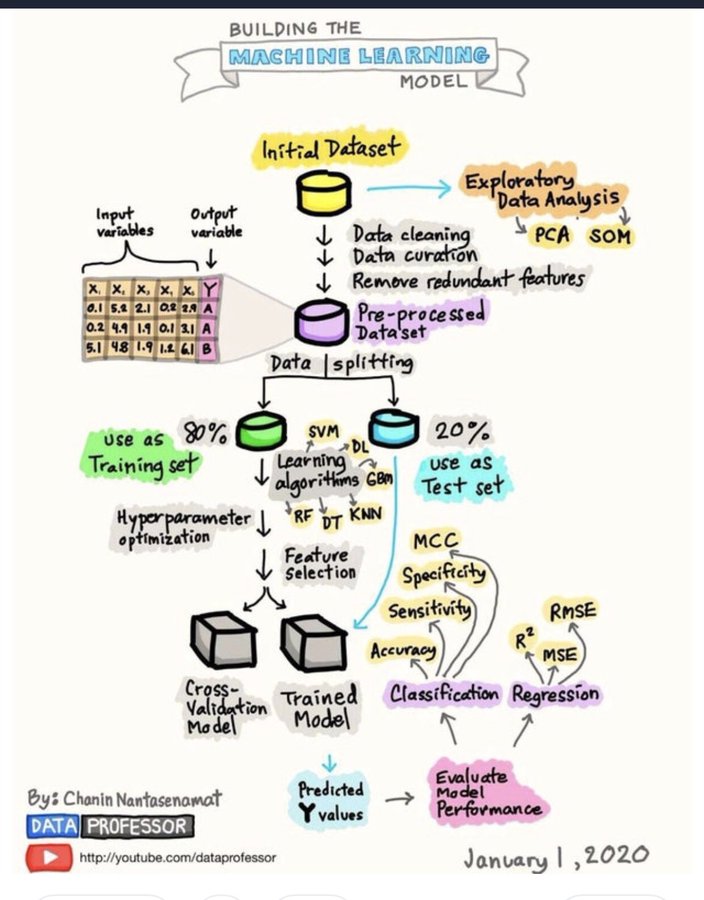 BUILDING THE
MACHINE LEARNING
MODEL
Initial Dataset
Exploratory
Data Analysis
PCA SOM
Input
variables
Output
variable
Data cleaning
Data curation
Remove redundant features
X, X, X, X, X, Y
0.1 5.2 2.1 0.2 2.9 A
0.2 4.9 1.9 0.1 3.1 A
5.1 4.8 1.9 1.2 6.1 B
Pre-processed
Dataset
Data splitting
80%
20%
use as
Training set
use as
Test set
SVM
DL
Learning
algorithms
GBM
RF DT KNN
Hyperparameter
optimization
Feature
Selection
MCC
Specificity
Sensitivity
Accuracy
RMSE
R²
MSE
Cross-
Validation
Model
Trained
Model
Classification
Regression
Predicted
Y values
Evaluate
Model
Performance
By: Chanin Nantasenamat
DATA PROFESSOR
http://youtube.com/dataprofessor
January 1, 2020